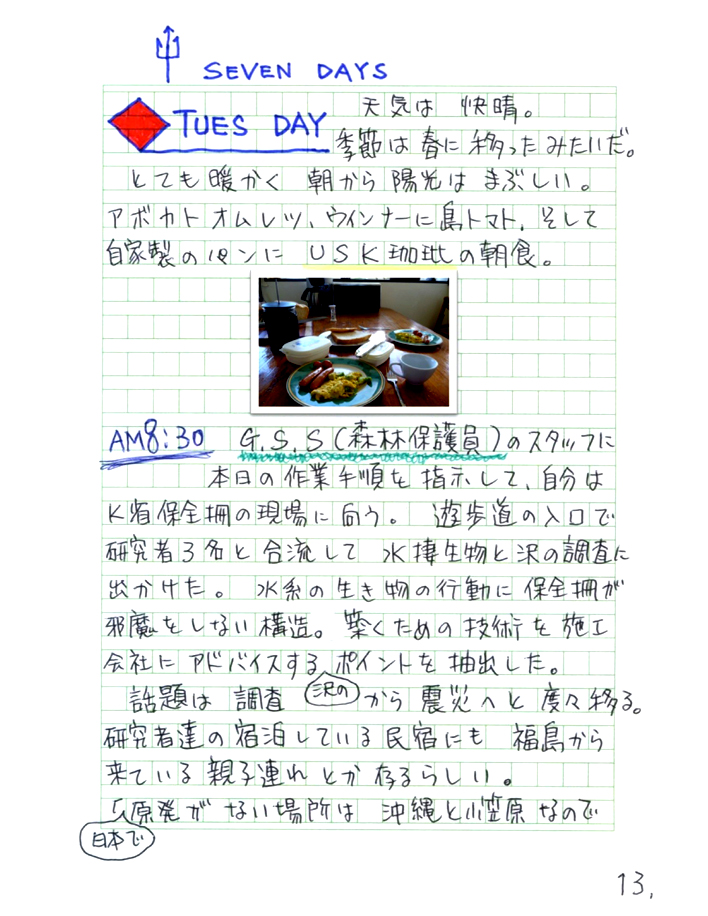 SEVEN DAYS
TUES DAY 天気は 快晴。
季節は春に移ったみたいだ。
とても暖かく 朝から陽光は まぶしい。
アボカドオムレツ、ウインナーに島トマト、そして
自家製のパンに USK珈琲の朝食。
AM8:30 G.S.S(森林保護員)のスタッフに
本日の作業手順を指示して、自分は
K省保全柵の現場に向う。 遊歩道の入口で
研究者3名と合流して 水棲生物と沢の調査に
出かけた。 水系の生き物の行動に保全柵が
邪魔をしない構造。築くための技術を施工
会社にアドバイスするポイントを抽出した。
話題は 調査 沢の から震災へと度々移る。
研究者達の宿泊している民宿にも 福島から
来ている親子連れとか存るらしい。
「原発がない場所は 沖縄と小笠原なので
日本で
13.